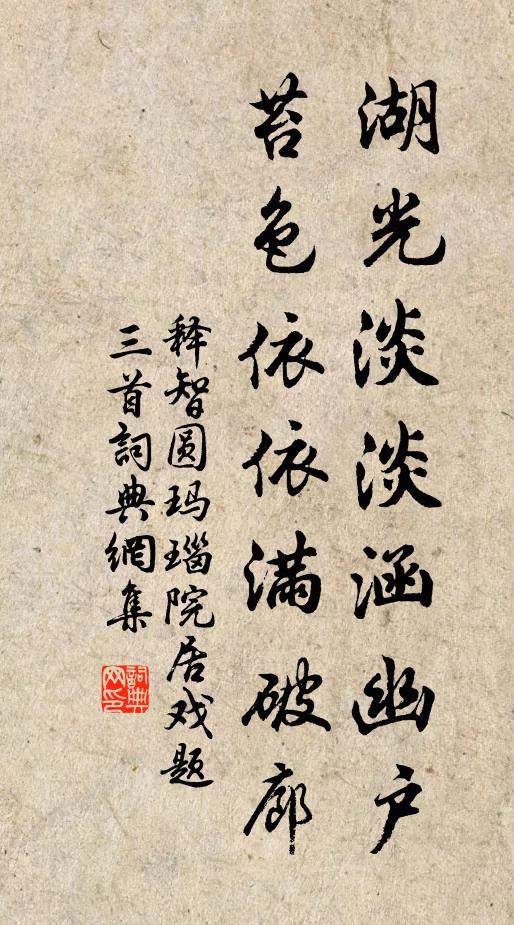 湖光淡淡涵幽户
苔色依依满破廊
释智圆玛瑙院居戏题
三首詞典網集
詞典
网印